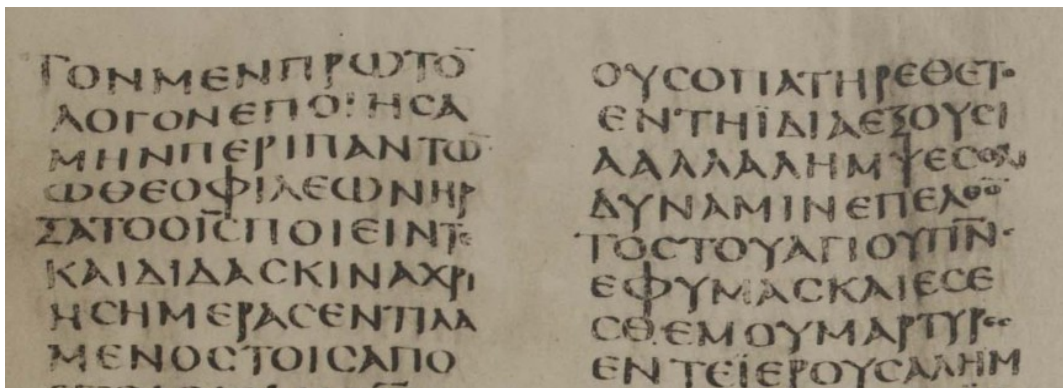 ΤΟΝΜΕΝΠΡΩΤΟ̅
ΛΟΓΟΝΕΠΟΙΗϹΑ
ΜΗΝΠΕΡΙΠΑΝΤΩ̅
ΩΘΕΟΦΙΛΕΩΝΗΡ
ΞΑΤΟΟΙ̅Ϲ̅ΠΟΙΕΙΝΤΕ
ΚΑΙΔΙΔΑϹΚΙΝΑΧΡΙ
ΗϹΗΜΕΡΑϹΕΝΤΙΛΑ
ΜΕΝΟϹΤΟΙϹΑΠΟ
ΟΥϹΟΠΑΤΗΡΕΘΕΤΟ
ΕΝΤΗΪΔΙΑΕΞΟΥϹΙ
ΑΑΛΛΑΛΗΜΨΕϹΘΑΙ
ΔΥΝΑΜΙΝΕΠΕΛΘΟ̅
ΤΟϹΤΟΥΑΓΙΟΥΠ̅Ν̅Ϲ
ΕΦΥΜΑϹΚΑΙΕϹΕ
ϹΘΕΜΟΥΜΑΡΤΥΡΕϹ
ΕΝΤΕΪΕΡΟΥϹΑΛΗΜ